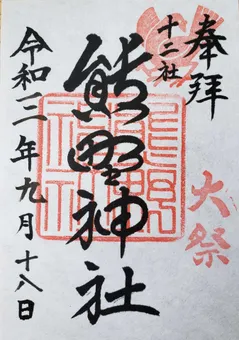 奉拝
十二社
熊野神社
大祭
令和三年九月十八日